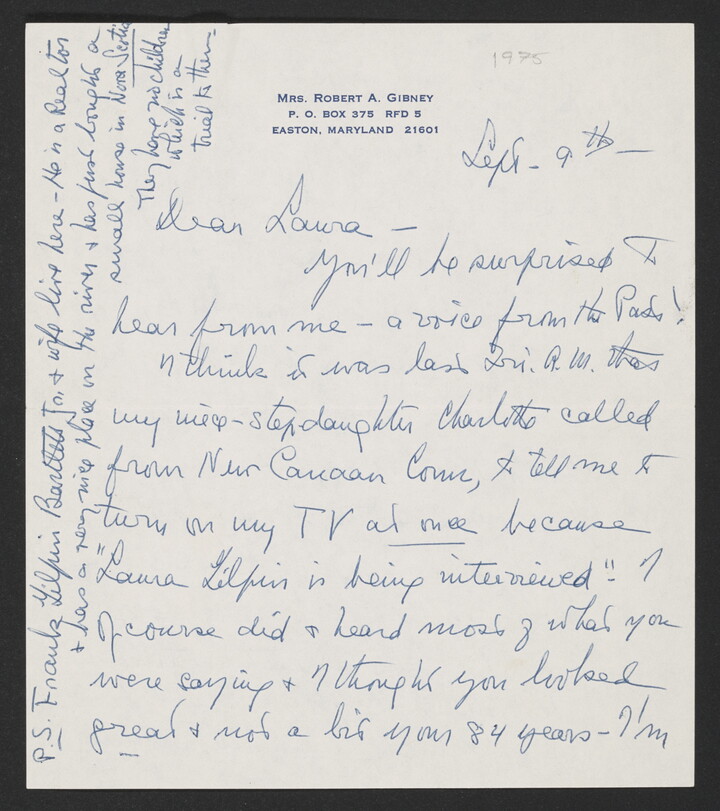 1975
MRS. ROBERT A. GIBNEY
P. O. BOX 375 RFD 5
EASTON, MARYLAND 21601
Sept - 9th -
Dear Laura -
You'll be surprised to
hear from me - a voice from the Past!
I think it was last Fri. A.M. that
my nice - stepdaughter Charlotte called
from New Canaan Conn, to tell me to
turn on my TV at once because
"Laura Gilpin is being interviewed"! I
of course did & heard most of what you
were saying & I thought you looked
great & not a bit your 84 years - I'm
P.S. Frank Gilpin Bartlett Jr. & wife live here - He is a Realtor
& has a very nice place on the river & has just bought a
small house in Nova Scotia
They have no children
which is a
trial to them -